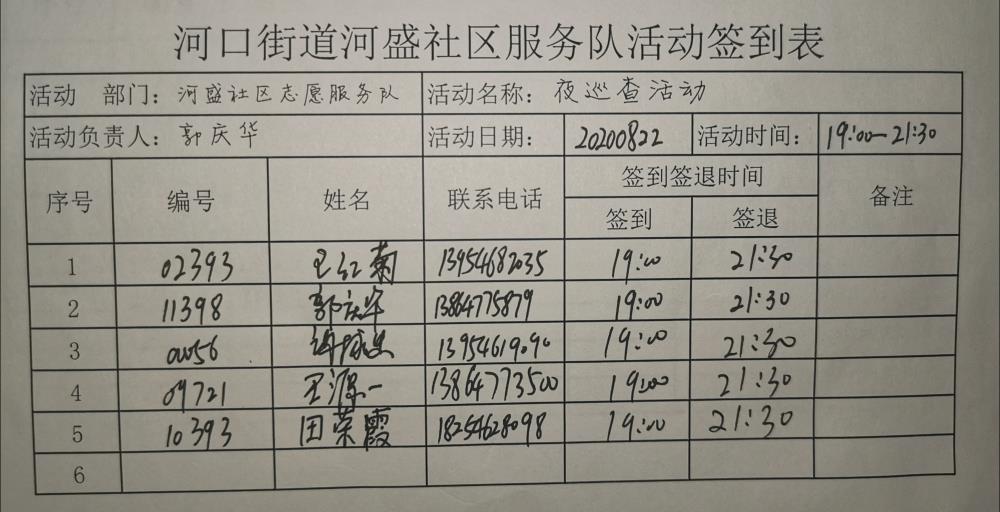 河口街道河盛社区服务队活动签到表
活动 部门: 河盛社区志愿服务队 活动名称: 夜巡查活动
活动负责人: 郭庆华 活动日期: 20200822 活动时间: 19:00-21:30
序号 编号 姓名 联系电话 签到签退时间 备注
签到 签退
1 02393 王红菊 13954682035 19:00 21:30
2 11398 郭庆华 13864775879 19:00 21:30
3 13954619090 19:00 21:30
4 09721 王源一 13864773500 19:00 21:30
5 10393 田荣霞 18254628098 19:00 21:30
6